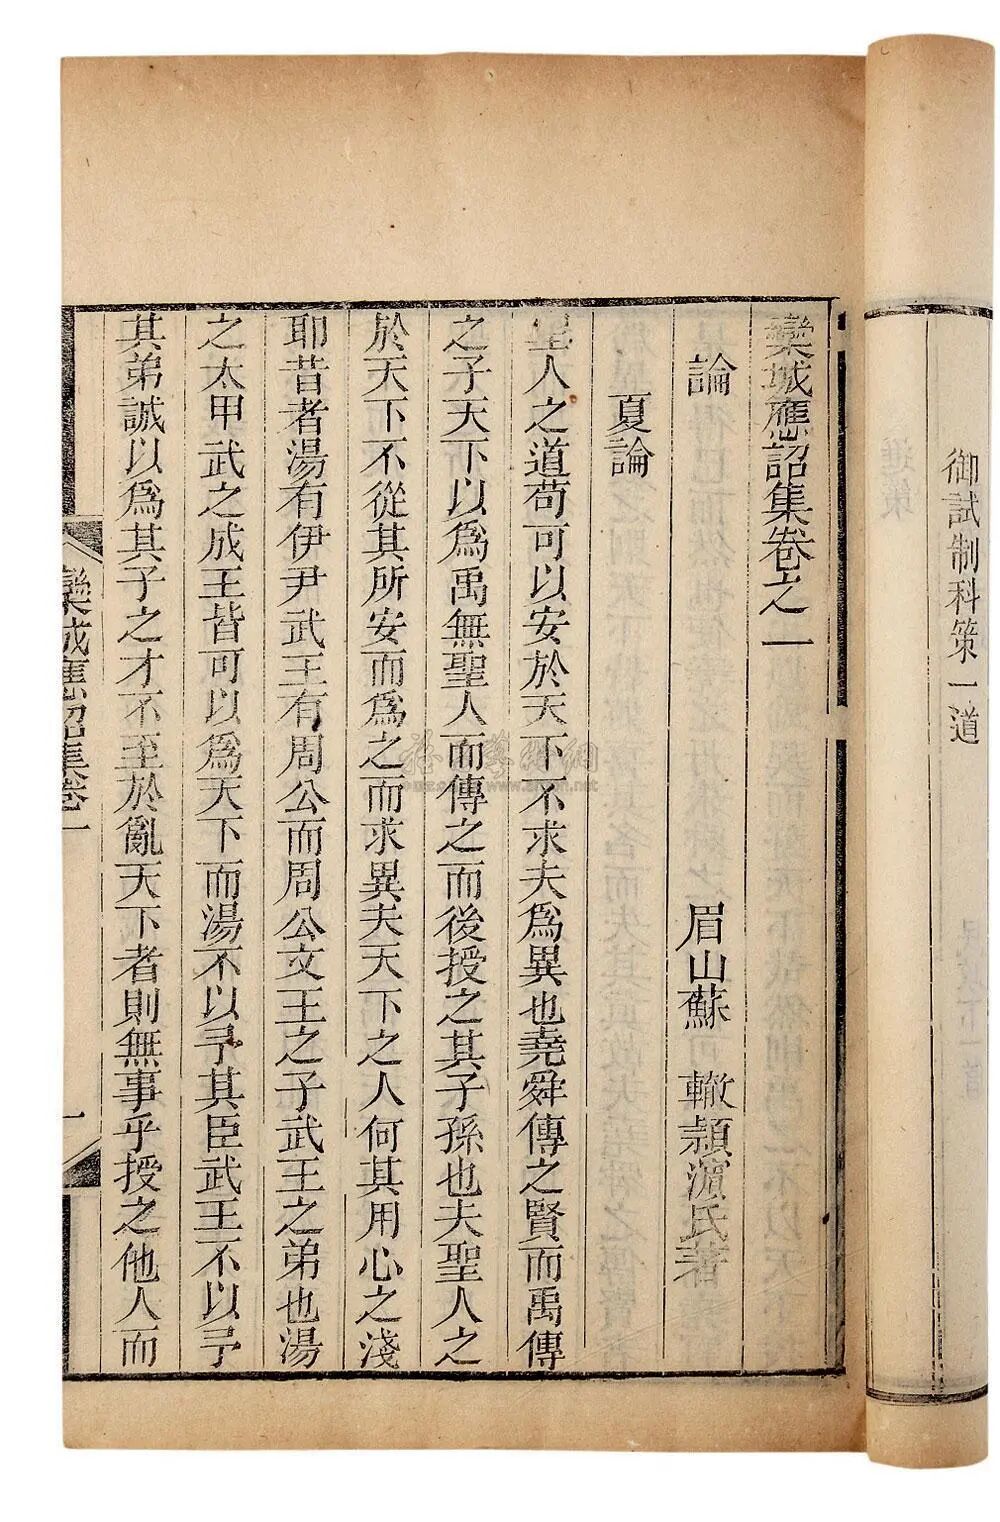 御試制科策一道
欒城應詔集卷之一
眉山蘇 轍潁濵氏著
論
夏論
聖人之道苟可以安於天下不求夫爲異也堯舜傳之賢而禹傳
之子天下以爲禹無聖人而傳之而後授之其子孫也夫聖人之
於天下不從其所安而爲之而求異夫天下之人何其用心之淺
耶昔者湯有伊尹武王有周公而周公文王之子武王之弟也湯
之太甲武之成王皆可以爲天下而湯不以予其臣武王不以予
其弟誠以爲其子之才不至於亂天下者則無事乎授之他人而
欒城應詔集卷一
一